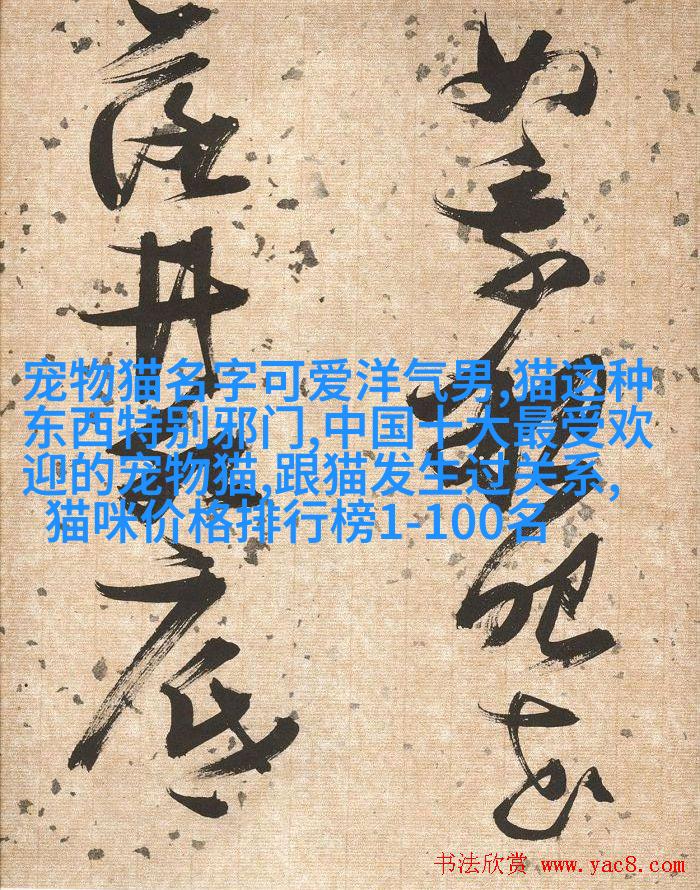 如
落井底
宠物猫名字可爱洋气男,猫这种
东西特别邪门,中国十大最受欢
迎的宠物猫,跟猫发生过关系,
猫咪价格排行榜1-100名
书法欣赏 www.yac8.com